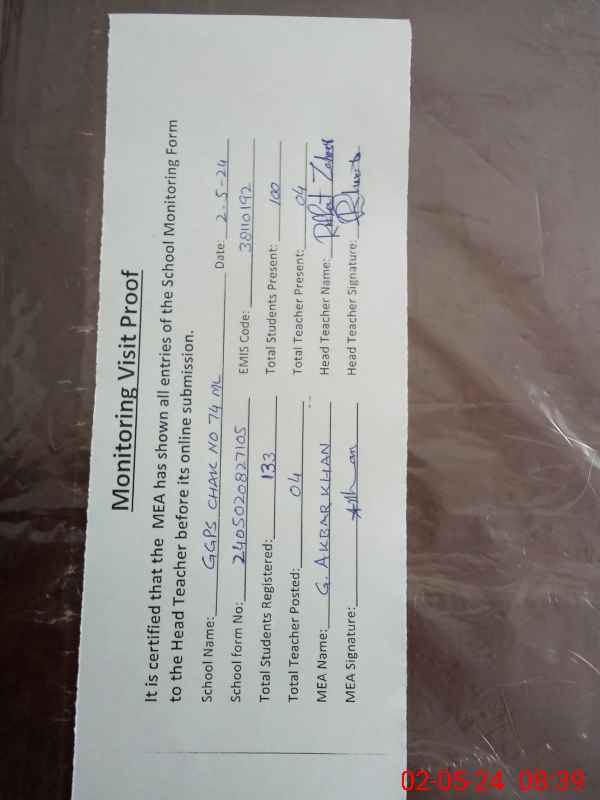 Monitoring Visit Proof
It is certified that the MEA has shown all entries of the School Monitoring Form
to the Head Teacher before its online submission.
School Name: GGPS CHAK NO 74 ML Date: 2-5-24
School form No: 2405020827105 EMIS Code: 38110192
Total Students Registered: 133 Total Students Present: 100
Total Teacher Posted: 04 Total Teacher Present: 04
MEA Name: G. AKBAR KHAN Head Teacher Name: Riffat Zahoor
MEA Signature: Head Teacher Signature:
02-05-24 08:39